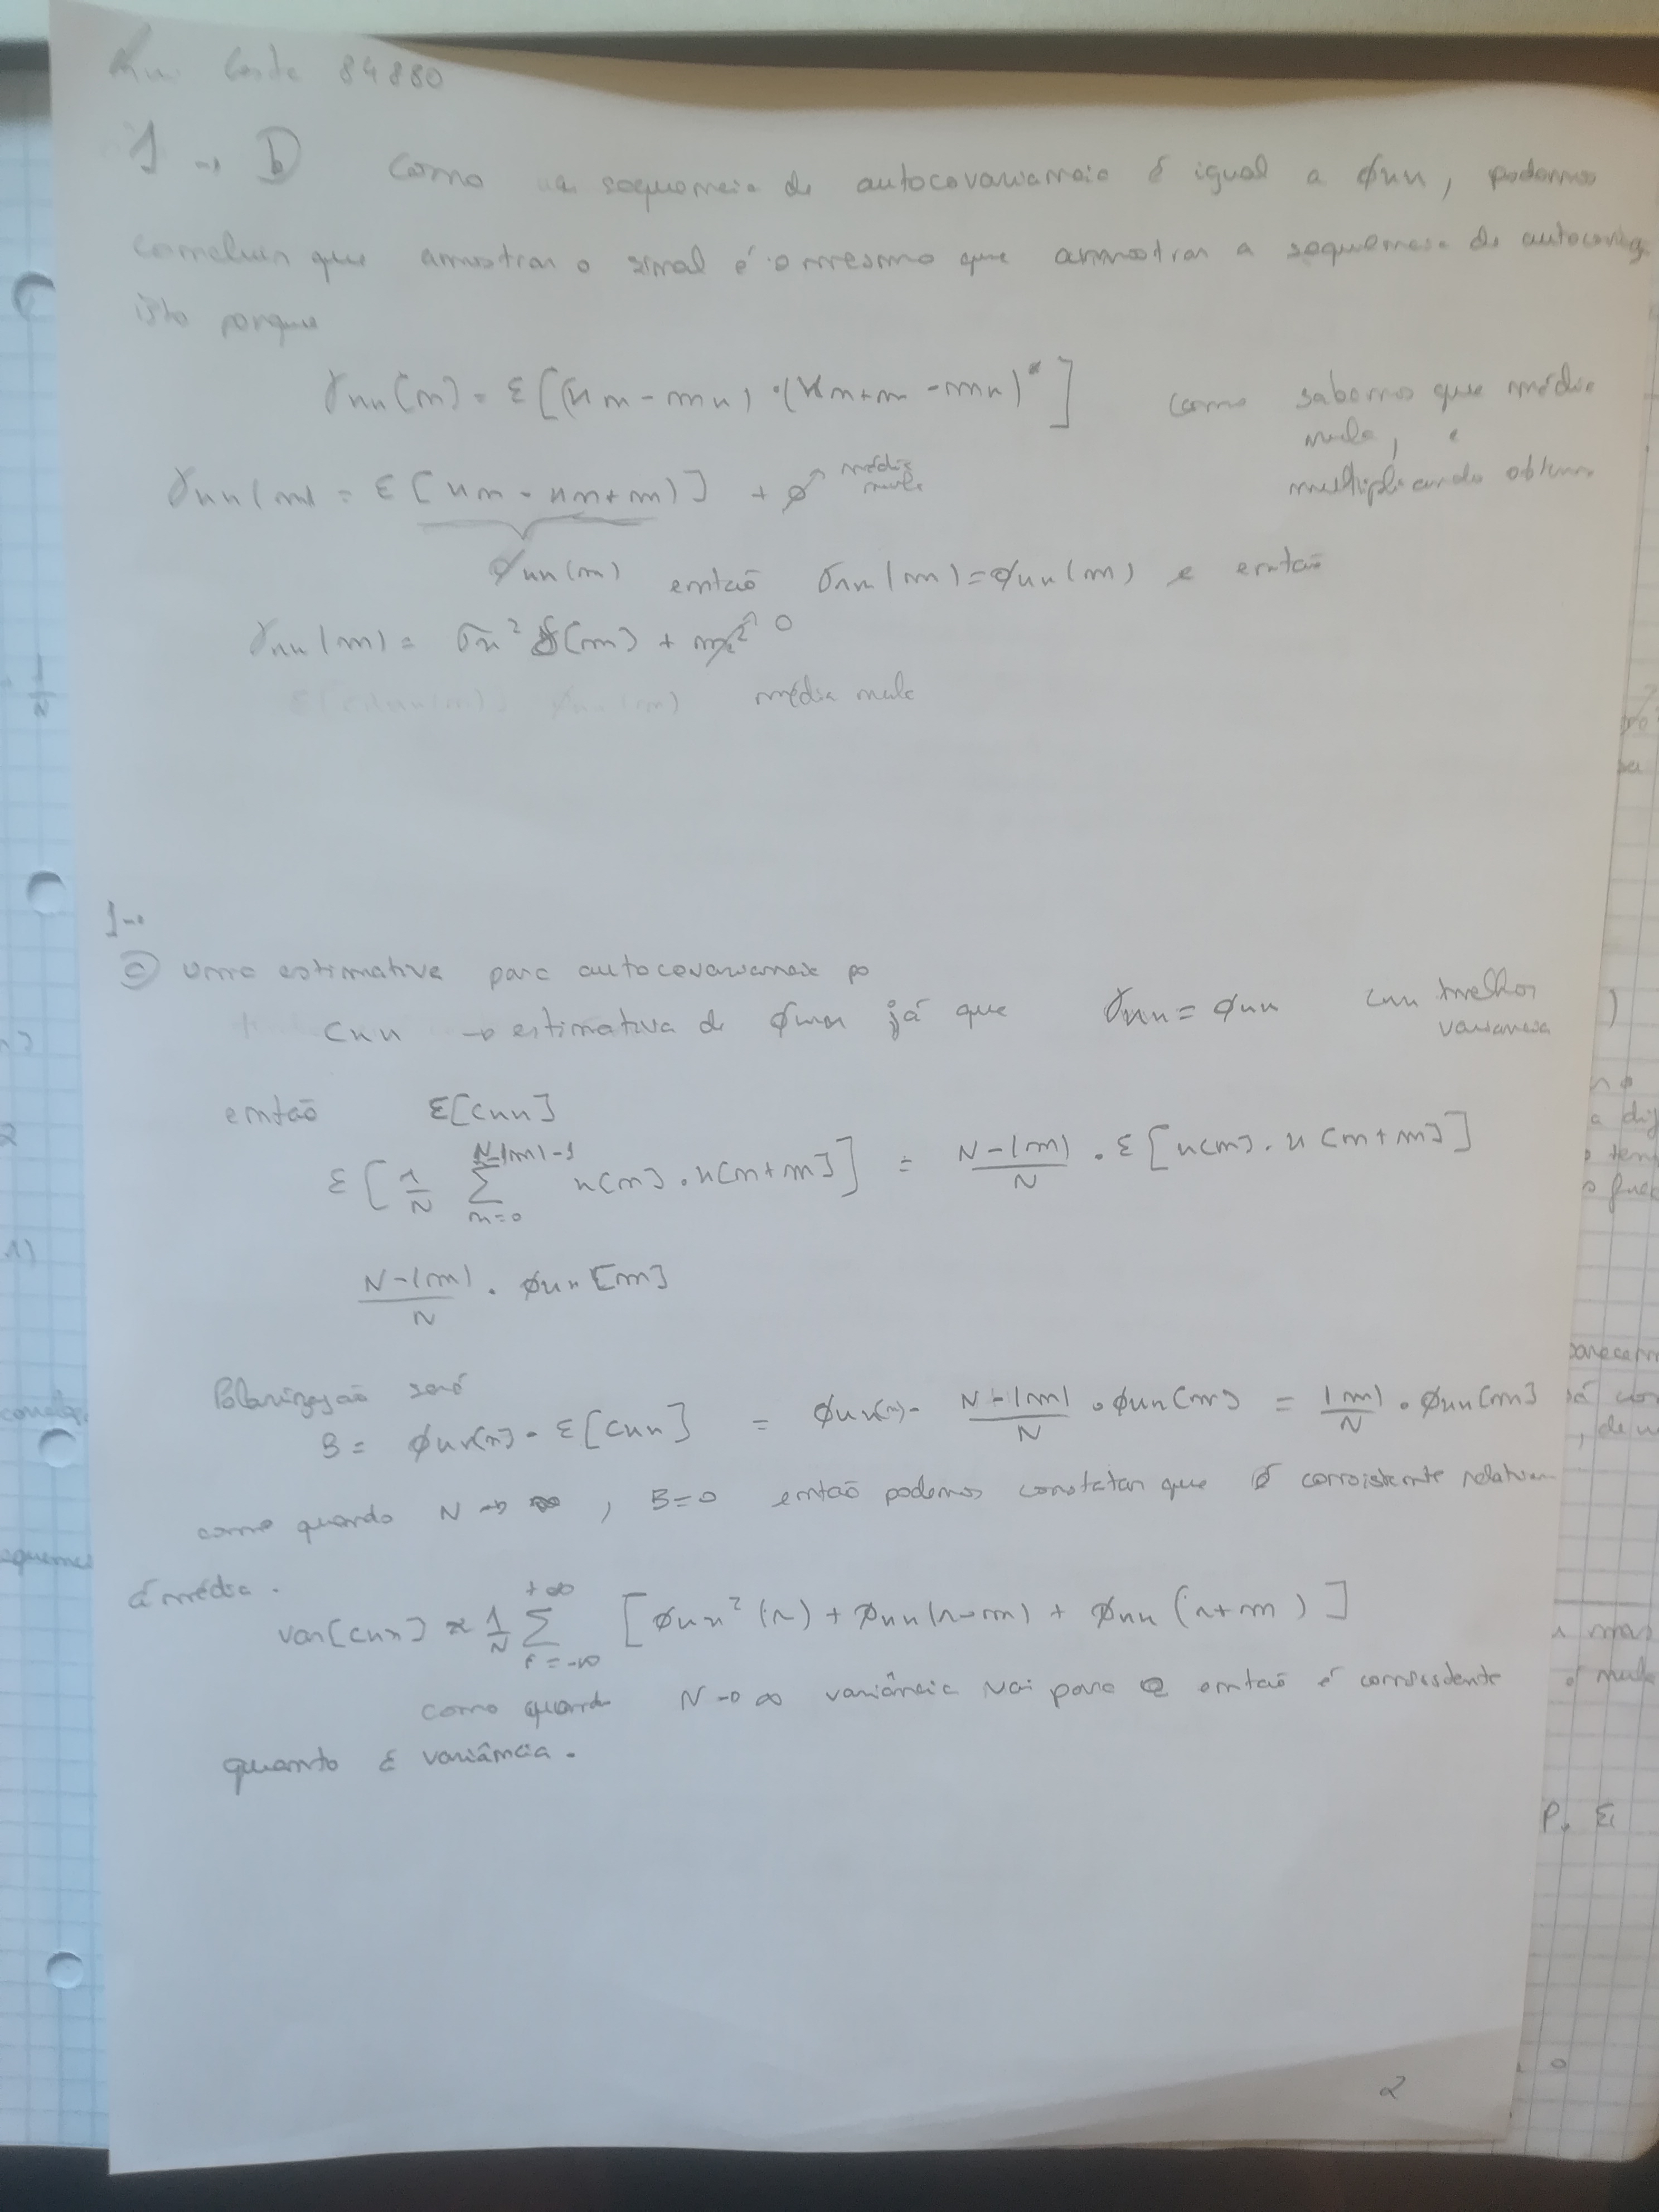 Rui Costa 84880
1 → b Como a sequencia de autocovariancia é igual a ϕxx, podemos
concluir que amostrar o sinal é o mesmo que amostrar a sequencia de
isto porque
γxx[m] = ε[(xn - mx) · (xn+m - mx)*] como sabemos que média
nula, e
γxx[m] = ε[xn · xn+m)] + 0 média nula multiplicando obtemos
ϕxx(m) então γxx(m) = ϕxx(m) e então
γxx(m) = σx² δ[m] + mx² 0
média nula
1→
c) uma estimativa para autocovariancia po
Cxx → estimativa de ϕxx já que γxx = ϕxx Cxx melhor
variancia
então ε[Cxx]
ε[1/N Σ_{n=0}^{N-|m|-1} x[n] · x[n+m]] = N-|m|/N · ε[x[n] · x[n+m]]
N-|m|/N · ϕxx[m]
Polarização será
B = ϕxx[m] - ε[Cxx] = ϕxx[m] - N-|m|/N · ϕxx[m] = |m|/N · ϕxx[m]
como quando N → ∞, B=0 então podemos constatar que é consistente
á média.
var[Cxx] ≈ 1/N Σ_{r=-∞}^{+∞} [ϕxx²(r) + ϕxx(r-m) + ϕxx(r+m)]
como quando N → ∞ variância vai para 0 então é consistente
quanto á variância.
P.
2